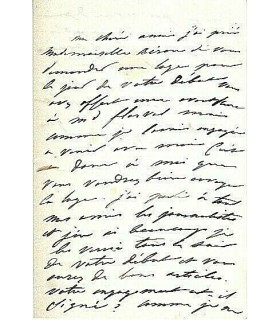 mon cher ami j'ai prié
Mademoiselle de vous
demander une loge pour
le jour de votre début
vous avez offert une
à md mais
comme je devais
à venir avec moi
donc à moi que
vous voudrez bien envoyer
la loge. j'ai parlé à tous
mes amis les journalistes
et j'en ai beaucoup je
les verrai tous le soir
de votre début et vous
aurez de bons articles.
votre engagement est-il
signé? comme je